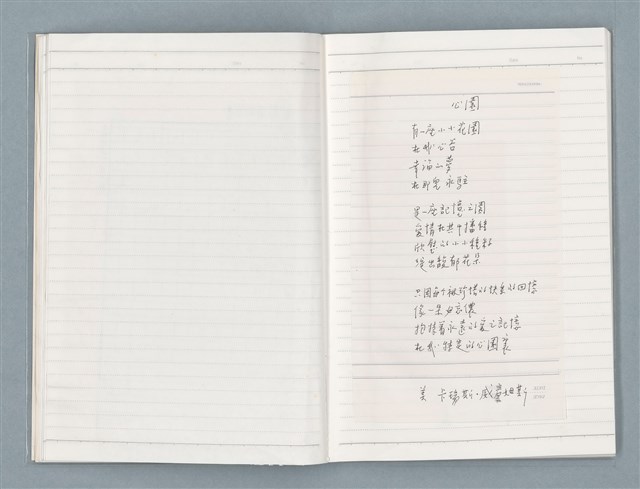 心園
有一座小小花園
在我心谷
幸福之夢
在那兒永駐
是一座記憶之園
愛情在其中播種
欣然的小小種籽
綻出馥郁花朵
只因每个被珍惜的快樂的回憶
像一朵
抱持着永遠的爱之記憶
在我特定的心園裏
美 卡瑞斯·威廉姆斯